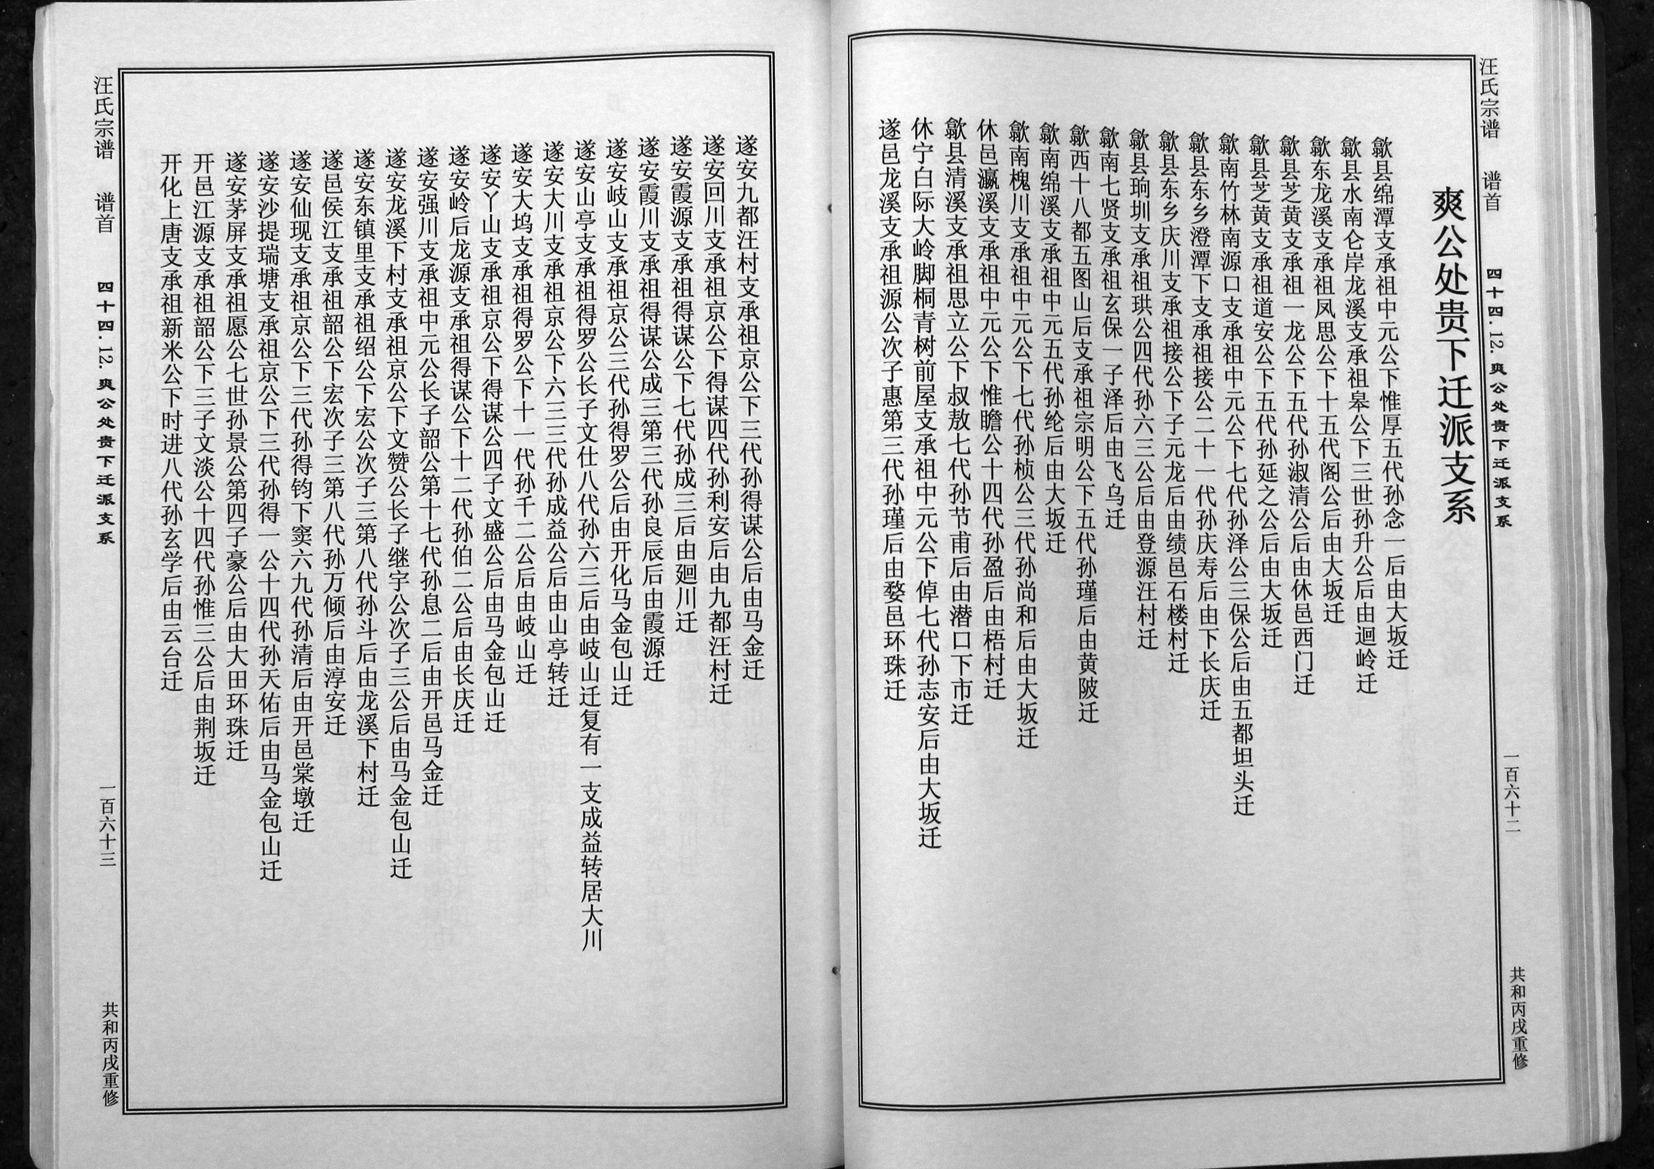 汪氏宗谱 谱首 四十四.12.爽公处贵下迁派支系 一百六十二 共和丙戌重修
爽公处贵下迁派支系
歙县绵潭支承祖中元公下惟厚五代孙念一后由大坂迁
歙县水南仑岸龙溪支承祖皋公下三世孙升公后由迴岭迁
歙东龙溪支承祖凤思公下十五代阁公后由大坂迁
歙县芝黄支承祖一龙公下五代孙淑清公后由休邑西门迁
歙县芝黄支承祖道安公下五代孙延之公后由大坂迁
歙南竹林南源口支承祖中元公下七代孙泽公三保公后由五都坦头迁
歙县东乡澄潭下支承祖接公二十一代孙庆寿后由下长庆迁
歙县东乡庆川支承祖接公下子元龙后由绩邑石楼村迁
歙县珣圳支承祖珙公四代孙六三公后由登源汪村迁
歙南七贤支承祖玄保一子泽后由飞乌迁
歙西十八都五图山后支承祖宗明公下五代孙瑾后由黄陂迁
歙南绵溪支承祖中元五代孙纶后由大坂迁
歙南槐川支承祖中元公下七代孙桢公三代孙尚和后由大坂迁
休邑瀛溪支承祖中元公下惟瞻公十四代孙盈后由梧村迁
歙县清溪支承祖思立公下叔敖七代孙节甫后由潜口下市迁
休宁白际大岭脚桐青树前屋支承祖中元公下倬七代孙志安后由大坂迁
遂邑龙溪支承祖源公次子惠第三代孙瑾后由婺邑环珠迁
遂安九都汪村支承祖京公下三代孙得谋公后由马金迁
遂安回川支承祖京公下得谋四代孙利安后由九都汪村迁
遂安霞源支承祖得谋公下七代孙成三后由廻川迁
遂安霞川支承祖得谋公成三第三代孙良辰后由霞源迁
遂安岐山支承祖京公三代孙得罗公后由开化马金包山迁
遂安山亭支承祖得罗公长子文仕八代孙六三后由岐山迁复有一支成益转居大川
遂安大川支承祖京公下六三三代孙成益公后由山亭转迁
遂安大坞支承祖得罗公下十一代孙千二公后由岐山迁
遂安丫山支承祖京公下得谋公四子文盛公后由马金包山迁
遂安岭后龙源支承祖得谋公下十二代孙伯二公后由长庆迁
遂安强川支承祖中元公长子韶公第十七代孙息二后由开邑马金迁
遂安龙溪下村支承祖京公下文赞公长子继宇公次子三公后由马金包山迁
遂安东镇里支承祖绍公下宏公次子三第八代孙斗后由龙溪下村迁
遂邑侯江支承祖韶公下宏次子三第八代孙万倾后由淳安迁
遂安仙现支承祖京公下三代孙得钧下窦六九代孙清后由开邑棠墩迁
遂安沙提瑞塘支承祖京公下三代孙得一公十四代孙天佑后由马金包山迁
遂安茅屏支承祖愿公七世孙景公第四子豪公后由大田环珠迁
开邑江源支承祖韶公下三子文淡公十四代孙惟三公后由荆坂迁
开化上唐支承祖新米公下时进八代孙玄学后由云台迁
汪氏宗谱 谱首 四十四.12.爽公处贵下迁派支系 一百六十三 共和丙戌重修